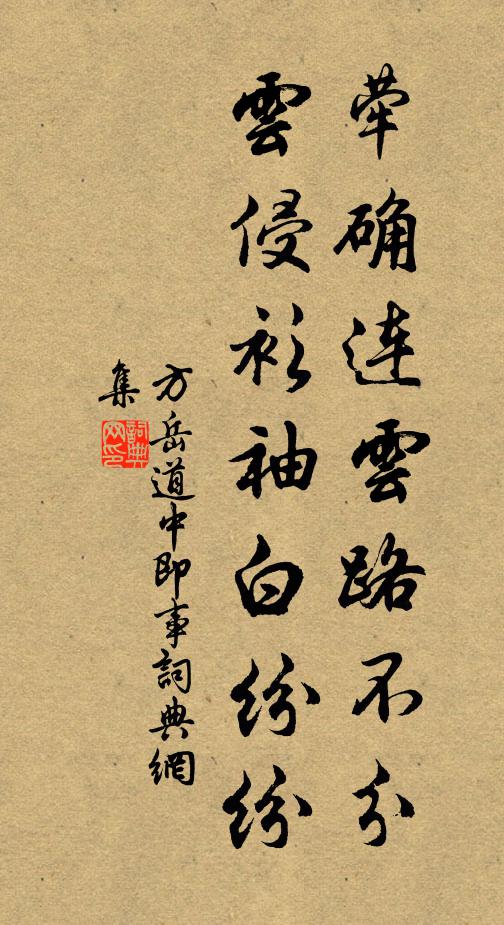 荦确連雲路不分
雲侵衫袖白紛紛
方岳道中即事詞典網
集
詞典
网印